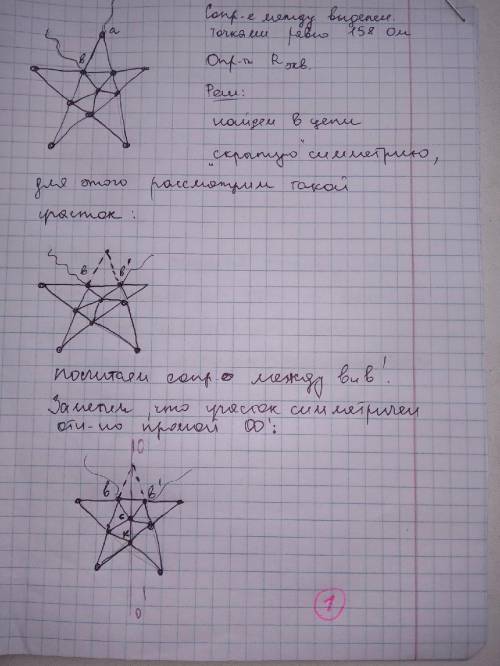 a
Сопр-е между выделен.
точками равно 158 Ом
Опр-ть Rэкв.
в
Реш:
найдем в цепи
"скрытую" симметрию,
для этого рассмотрим такой
участок:
в в'
посчитаем сопр-е между в и в'.
Заметим, что участок симметричен
отн-но прямой OO':
O
в в'
c
к
O'
1